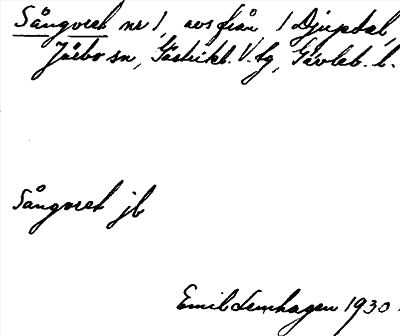 Sångvret nr 1, avs från 1 Djupdal,
Järbo sn, Gästrikl. V. tg, Gävleb. l.
Sångvret jb
Emil Lernhagen 1930.